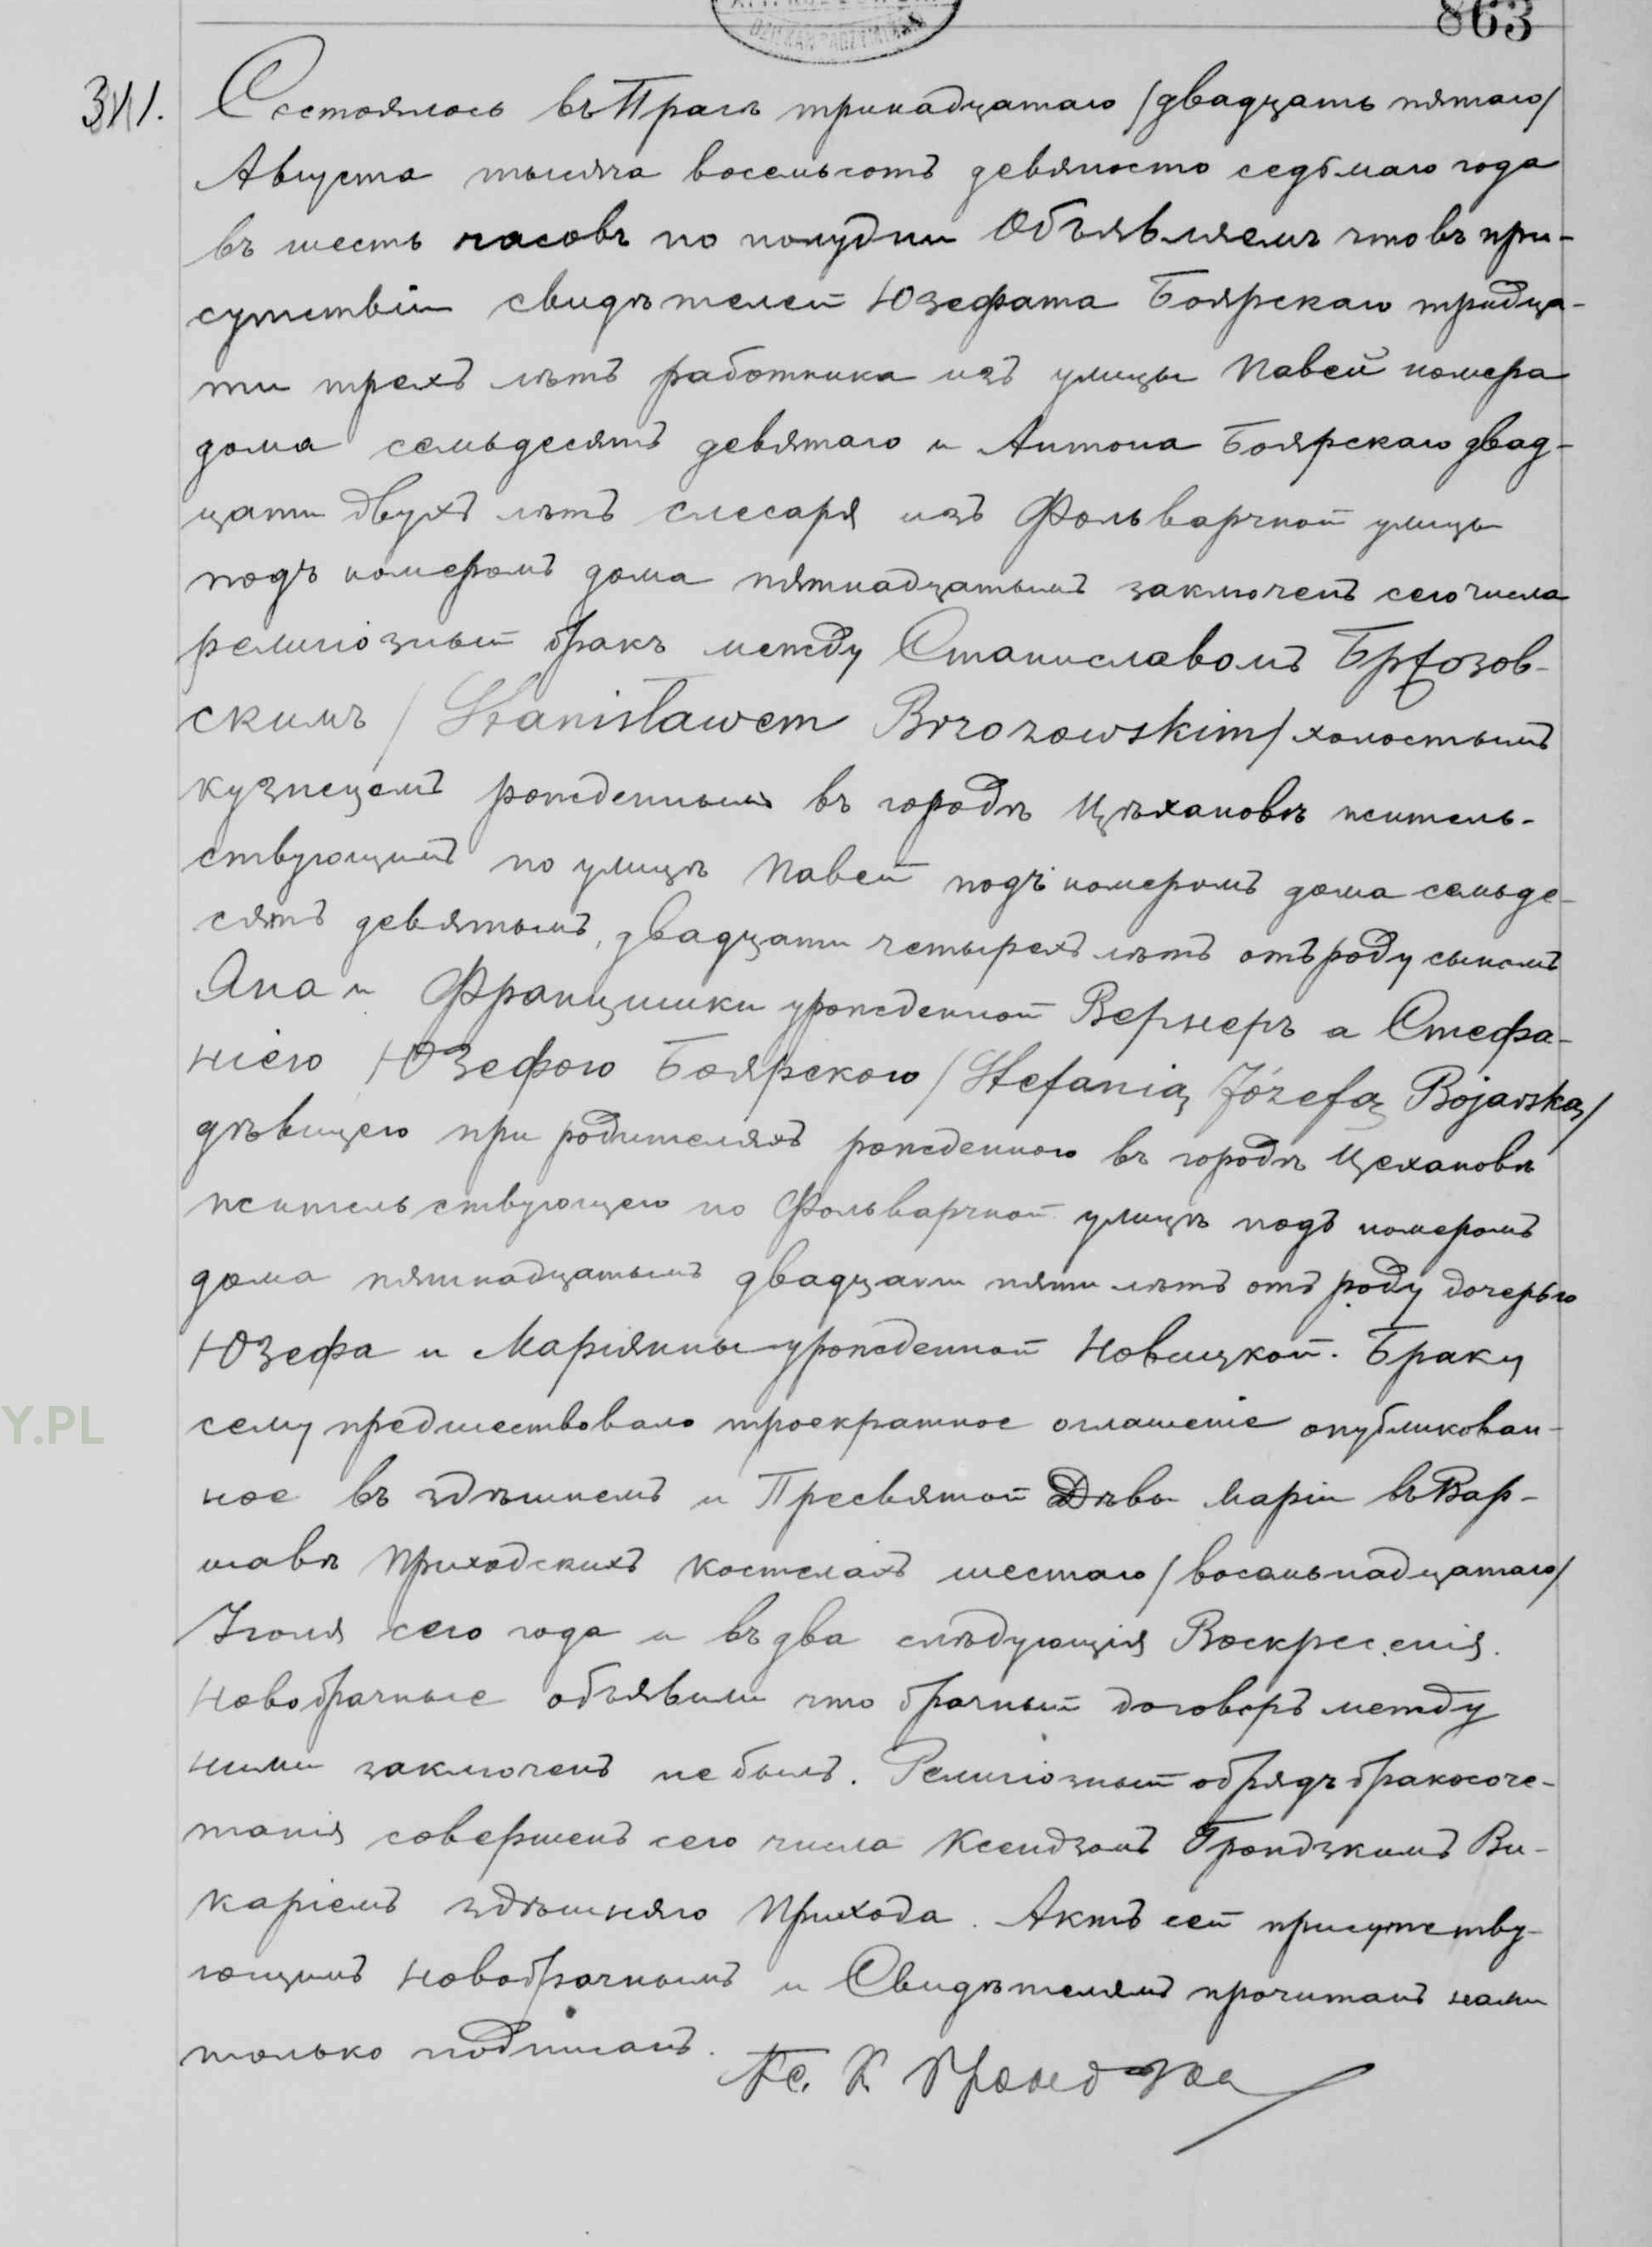 863
311.
Состоялось въ Прагѣ тринадцатаго /двадцать пятаго/
Августа тысяча восемьсотъ девяносто седьмаго года
въ шесть часовъ по полудни Объявляемъ что въ при-
сутствіи свидѣтелей Юзефата Боярскаго тридца-
ти трехъ лѣтъ работника изъ улицы Павей номера
дома семьдесятъ девятаго и Антона Боярскаго двад-
цати двухъ лѣтъ слесаря изъ Фольварчной улицы
подъ номеромъ дома пятнадцатымъ заключенъ сего числа
религіозный бракъ между Станиславомъ Бржозов-
скимъ /Stanisławem Brzozowskim/ холостымъ
кузнецемъ рожденнымъ въ городѣ Цѣхановѣ житель-
ствующимъ по улицѣ Павей подъ номеромъ дома семьде-
сятъ девятымъ, двадцати четырехъ лѣтъ отъ роду сыномъ
Яна и Францишки урожденной Вернеръ а Стефа-
ніею Юзефою Боярскою /Stefanią Józefą Bojarską/
дѣвицею при родителяхъ рожденною въ городѣ Цехановѣ
жительствующею по Фольварчной улицѣ подъ номеромъ
дома пятнадцатымъ двадцати пяти лѣтъ отъ роду дочерью
Юзефа и Маріянны урожденной Новицкой. Браку
сему предшествовало троекратное оглашеніе опубликован-
ное въ здѣшнемъ и Пресвятой Дѣвы Маріи въ Вар-
шавѣ приходскихъ костелахъ шестаго /восемьнадцатаго/
Іюля сего года и въ два слѣдующія Воскресенія.
Новобрачные объявили что брачный договоръ между
ними заключенъ не былъ. Религіозный обрядъ бракосоче-
танія совершенъ сего числа Ксендзомъ Грондзкимъ Ви-
каріемъ здѣшняго прихода. Актъ сей присутству-
ющимъ новобрачнымъ и Свидѣтелямъ прочитанъ нами
только подписанъ.
Кс. К
Y.PL